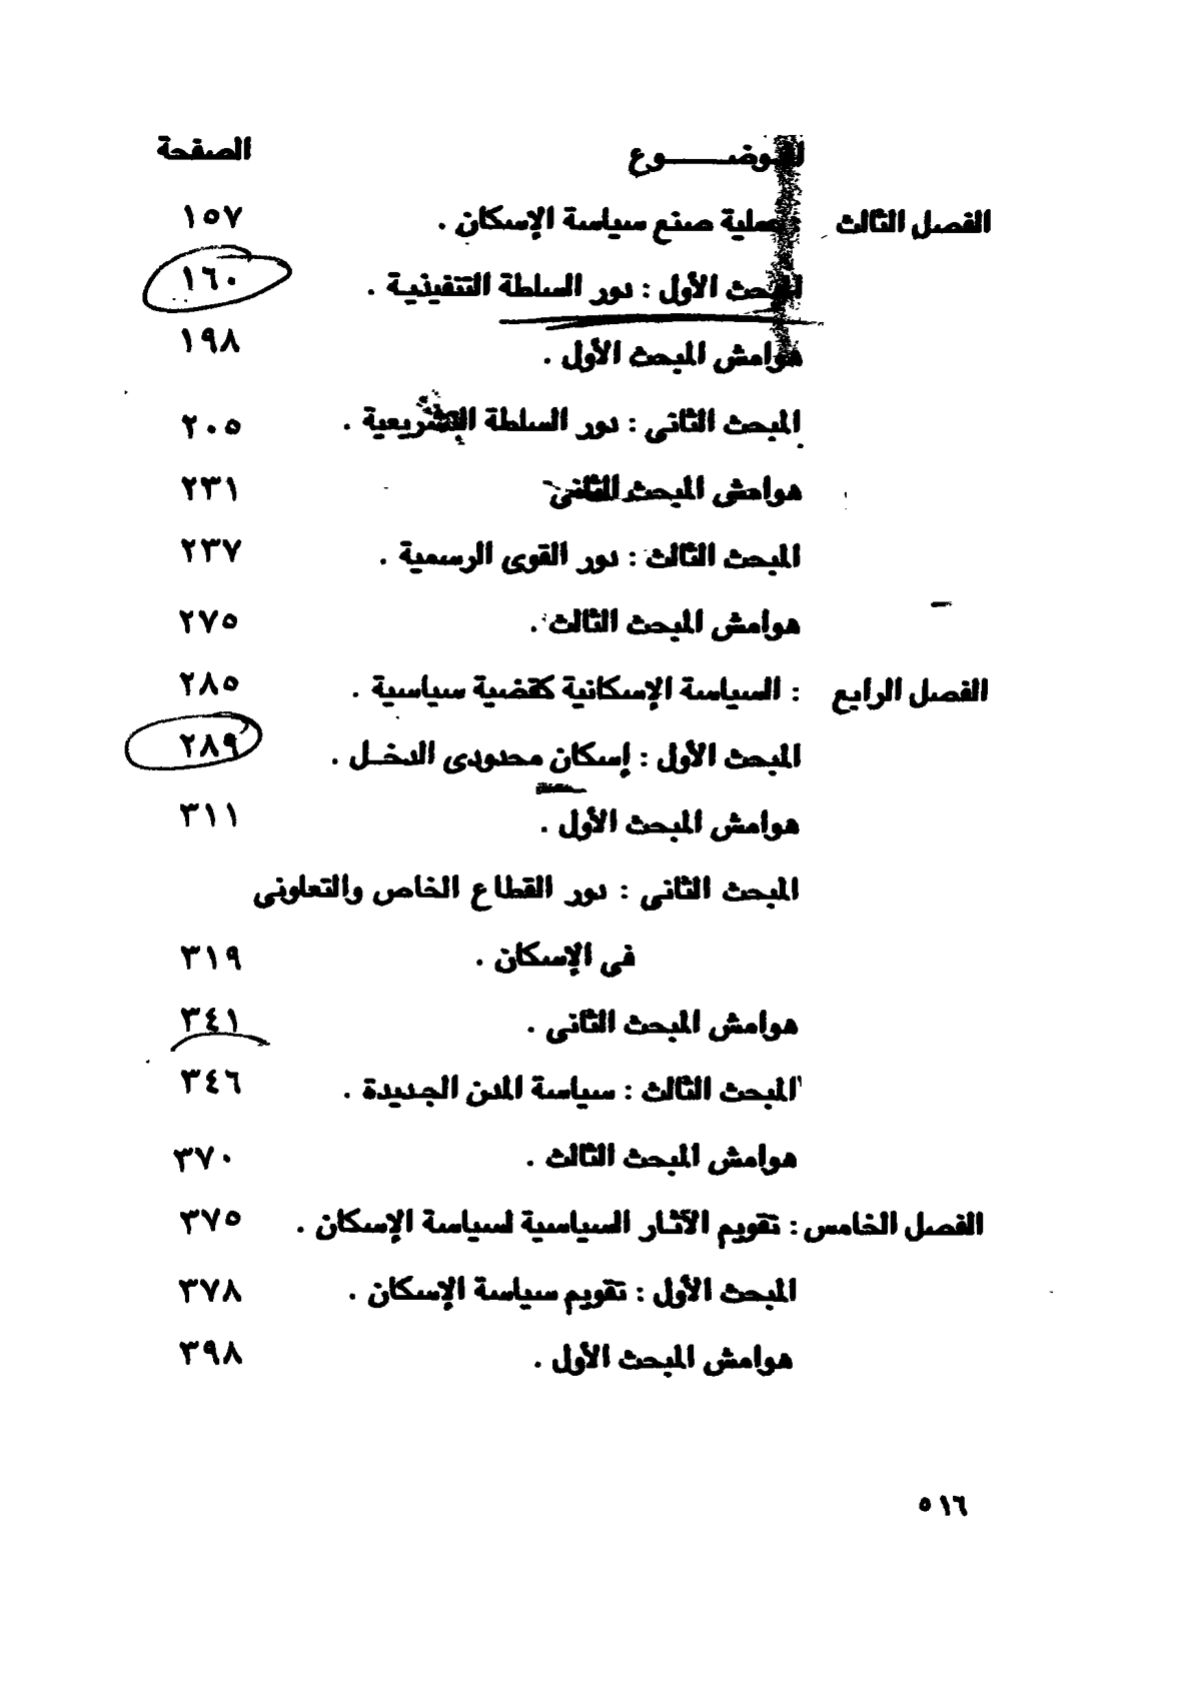 الموضـــــوع الصفحة
الفصل الثالث : عملية صنع سياسة الإسكان . ١٥٧
المبحث الأول : دور السلطة التنفيذية . ١٦٠
هوامش المبحث الأول . ١٩٨
المبحث الثانى : دور السلطة التشريعية . ٢٠٥
هوامش المبحث الثانى ٢٣١
المبحث الثالث : دور القوى الرسمية . ٢٣٧
هوامش المبحث الثالث . ٢٧٥
الفصل الرابع : السياسة الإسكانية كقضية سياسية . ٢٨٥
المبحث الأول : إسكان محدودى الدخـل . ٢٨٩
هوامش المبحث الأول . ٣١١
المبحث الثانى : دور القطاع الخاص والتعاونى
فى الإسكان . ٣١٩
هوامش المبحث الثانى . ٣٤١
المبحث الثالث : سياسة المدن الجديدة . ٣٤٦
هوامش المبحث الثالث . ٣٧٠
الفصل الخامس : تقويم الآثـار السياسية لسياسة الإسكان . ٣٧٥
المبحث الأول : تقويم سياسة الإسكان . ٣٧٨
هوامش المبحث الأول . ٣٩٨
٥١٦